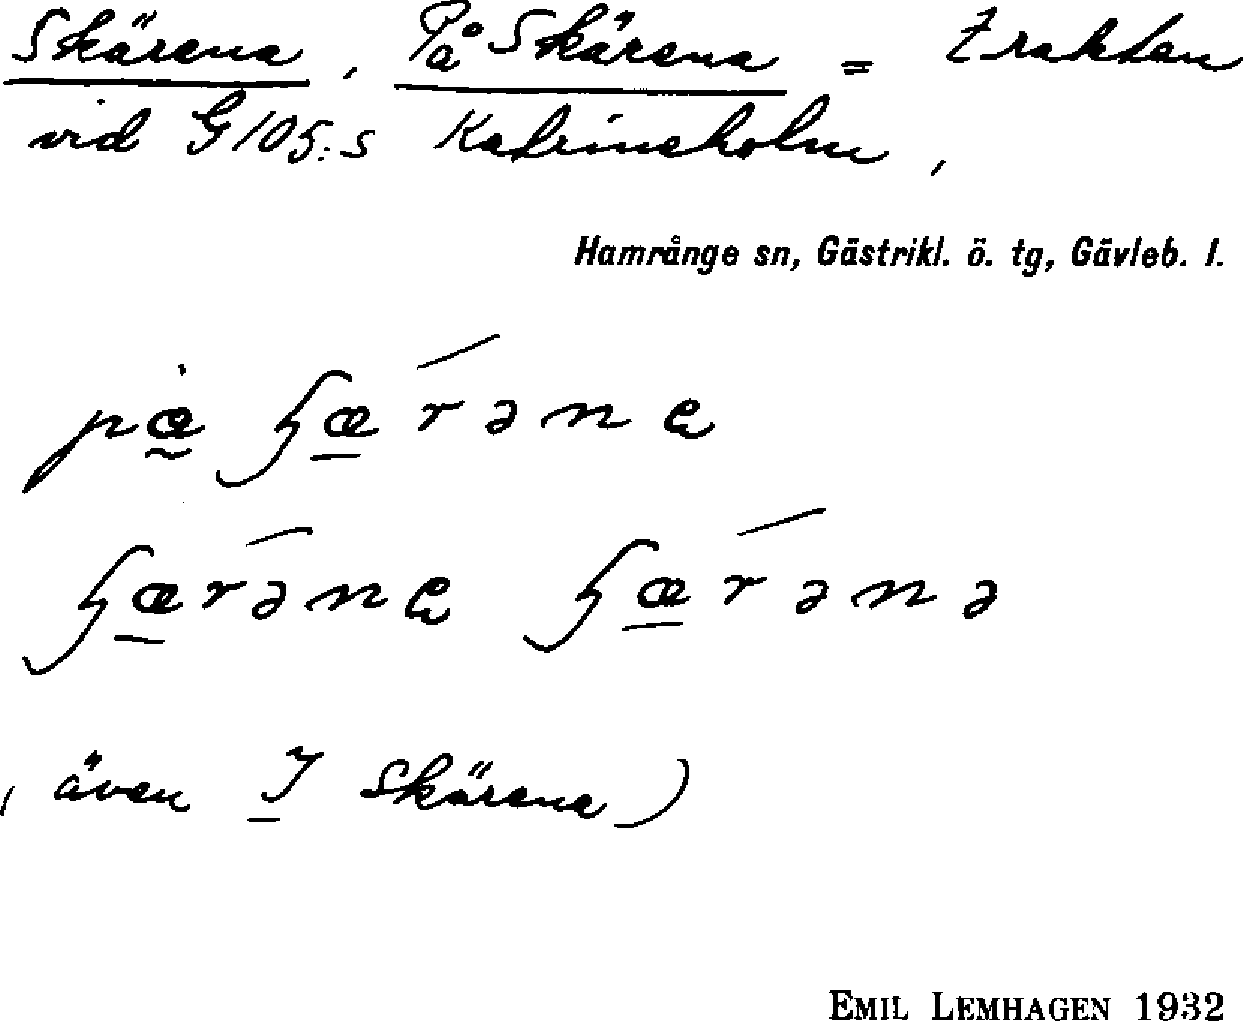 Skärena, På Skärena = Trakten
vid G105:s Katrineholm,
Hamrånge sn, Gästrikl. ö. tg, Gävleb. l.
(även I Skärena)
EMIL LEMHAGEN 1932